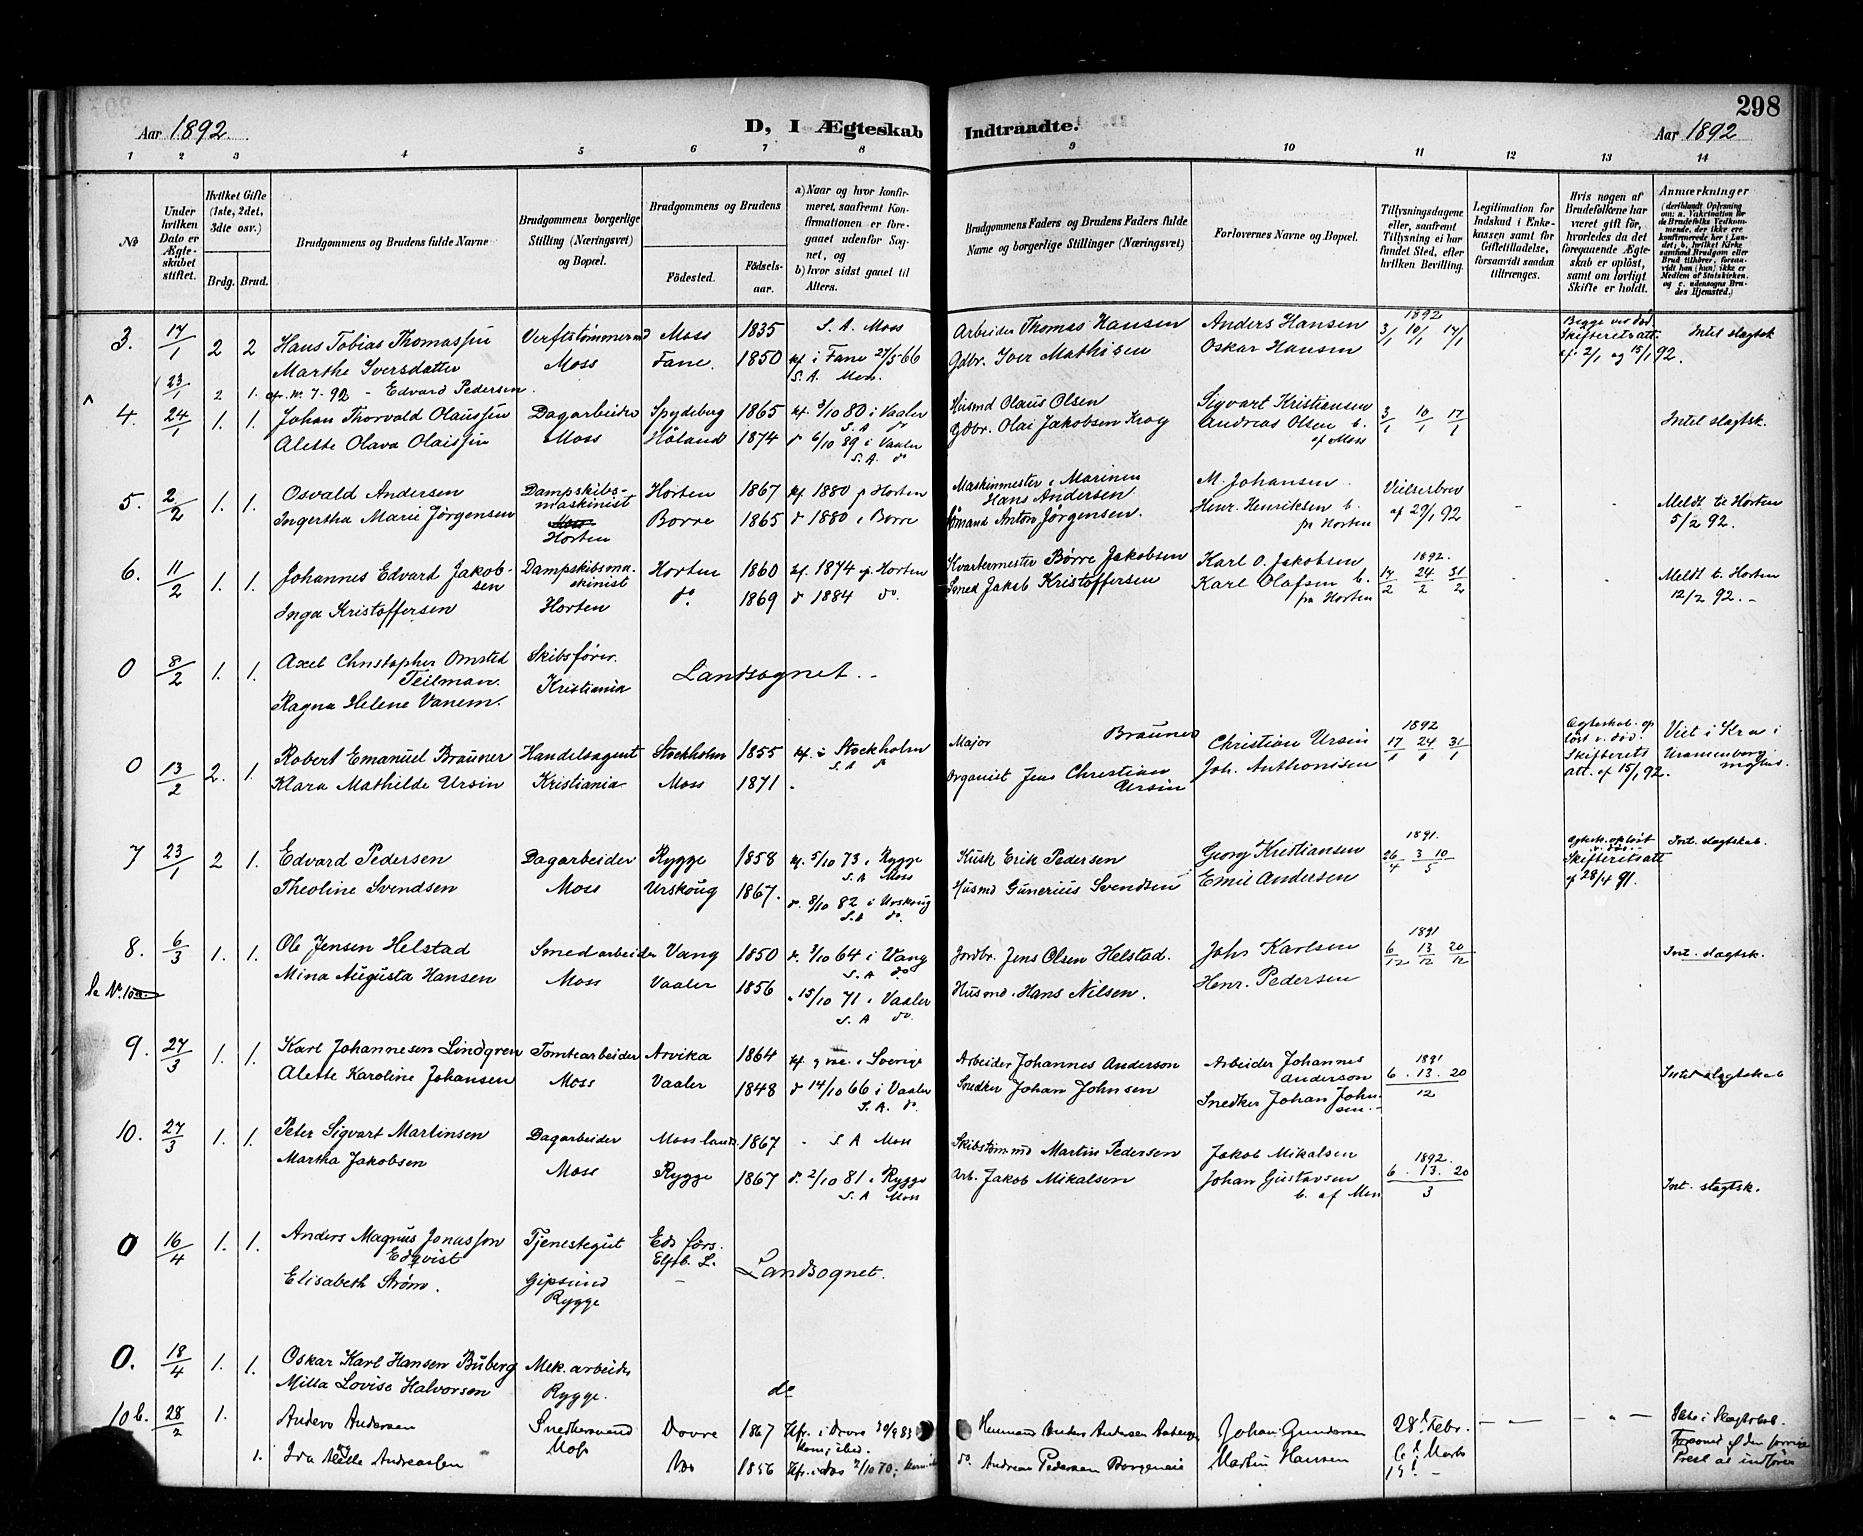 298
Aar 1892. D, I Ægteskab Indtraadte. Aar 1892
1 2 3 4 5 6 7 8 9 10 11 12 13 14
No
Under hvilken Dato er Ægteskabet stiftet.
Hvilket Gifte (1ste, 2det, 3dte osv.)
Brdg. Brud.
Brudgommens og Brudens fulde Navne
Brudgommens borgerlige Stilling (Næringsvei) og Bopæl.
Brudgommens og Brudens
Födested. Födselsaar.
a) Naar og hvor konfirmeret, saafremt Konfirmationen er foregaaet udenfor Sognet, og
b) hvor sidst gaaet til Alters.
Brudgommens Faders og Brudens Faders fulde Navne og borgerlige Stillinger (Næringsvei)
Forlovernes Navne og Bopæl.
Tillysningsdagene eller, saafremt Tillysning ei har fundet Sted, efter hvilken Bevilling.
Legitimation for Indskud i Enkekassen samt for Giftetilladelse, forsaavidt saadan tiltrænges.
Hvis nogen af Brudefolkene har været gift för, hvorledes da det foregaaende Ægteskab er oplöst, samt om lovligt Skifte er holdt.
Anmærkninger
3. 17/1 2 2 Hans Tobias Thomassen Verftstømmermd Moss 1835 S. A. Moss Arbeider Thomas Hansen Anders Hansen 1892 3/1 10/1 17/1 Begge ved død Skifteretsatt. af 2/1 og 15/1 92. Intet slagtsk
Marthe Iversdatter Moss Fane. 1850 kf i Fane 27/5 66 S. A. Moss. Gdbr. Iver Mathisen Oskar Hansen
23/1 2 1. cfr. No. 7. 92 - Edvard Pedersen.
4. 24/1 1. 1. Johan Thorvald Olaussen Dagarbeider Spydeberg 1865 kf. 3/10 80 i Vaaler S. A do Husmd Olaus Olsen Sigvart Kristiansen 3/1 10/1 17/1 Intet slagtsk.
Alette Olava Olaissen Moss Höland 1874 do 6/10 89 i Vaaler S. A. do Gdbr. Olai Jakobsen Krog Andreas Olsen b. af Moss
5. 2/2 1. 1. Osvald Andersen Dampskibsmaskinist Horten 1867 kf 1880 p Horten Maskinmester i Marinen Hans Andersen M. Johansen Vielserbrev af 29/1 92 Meldt te Horten 5/2 92.
Ingertha Marie Jørgensen Moss Horten Borre 1865 do 1880 i Borre Sømand Anton Jørgensen. Henr. Henriksen b. fra Horten
6. 11/2 1. 1. Johannes Edvard Jakobsen Dampskibsmaskinist Horten 1860 kf. 1874 p. Horten Kvartermester Børre Jakobsen Karl O. Jakobsen 1892. 17/2 24/2 31/2 Meldt t. Horten 12/2 92. -
Inga Kristoffersen Horten do 1869 do 1884 do Smed Jakob Kristoffersen Karl Olafsen b. fra Horten
0 8/2 1. 1. Axel Christopher Omsted Teilman. Skibsfører. Landsognet. -
Ragna Helene Vanem. Kristiania
0 13/2 2. 1. Robert Emanuel Brauner Handelsagent Stockholm 1855 kf. i Stockholm S. A do Major Brauner Christian Ursin 1892 17/1 24/1 31/1 Egteskab. opløst v. død. Skifterets att. af 15/1 92. Viet i Kra i Uranienborg
Klara Mathilde Ursin Kristiania Moss 1871 Organist Jens Christian Ursin Joh. Anthonisen
7 23/1 2 1. Edvard Pedersen Dagarbeider Rygge 1858 kf. 5/10 73 i Rygge S. A Moss Kusk Erik Pedersen Georg Kristiansen 1891. 26/4 3 10/5 Skifteretsatt af 28/4 91. Int. slagtskab.
Theoline Svendsen Moss Urskoug 1867. do. 8/10 82 i Urskoug S. A do. Husmd Gunerius Svendsen Emil Andersen
8. 6/3 1. 1. Ole Jensen Helstad Smedarbeider Vang 1850 do. 3/10 64 i Vang S. A do Jordbr. Jens Olsen Helstad. Johs Karlsen 1891 6/12 13/12 20/12 Int. slagtsk.
Mina Augusta Hansen Moss Vaaler 1856 15/10 71 i Vaaler S. A do Husmd. Hans Nilsen. Henr. Pedersen
9. 27/3 1. 1. Karl Johannesen Lindgren Tomtearbeider Arvika 1864 Arbeider Johannes Anderson Arbeider Johannes Anderson 1891 6. 13. 20 12 Intet slagtskab
Alette Karoline Johansen Moss Vaaler 1848 do 14/10 66 i Vaaler S. A. do. Snedker Johan Johnsen Snedker Johan Johnsen.
10. 27/3 1. 1. Peter Sigvart Martinsen Dagarbeider Moss lands. 1867 S A Moss Skibstømmd Martin Pedersen Jakob Mikalsen 1892. 6. 13. 20 3 Int. slagtsk.
Martha Jakobsen Moss Rygge 1867 do. 2/10 81 i Rygge S. A Moss Arb. Jakob Mikalsen Johan Gustavsen b. af Moss
0 16/4 1. 1. Anders Magnus Jonasson Edqvist Tjenestegut Eds förs. Elfsb. L. Landsognet.
Elisabeth Strøm. Gipsund Rygge
0. 18/4 1. 1. Oskar Karl Hansen Buberg Mek. arbeider do
Milla Lovise Halvorsen Rygge.
10 b. 28/2 1. Anders Andersen Snedkersvend Dovre 1867 Kfr. i Dovre Andersen Johan Gundersen 28d Febr.
1. Ida Alette Andreassen Moss 1856 do. Andreas Pedersen Martin Hansen 6d Marts 13d -